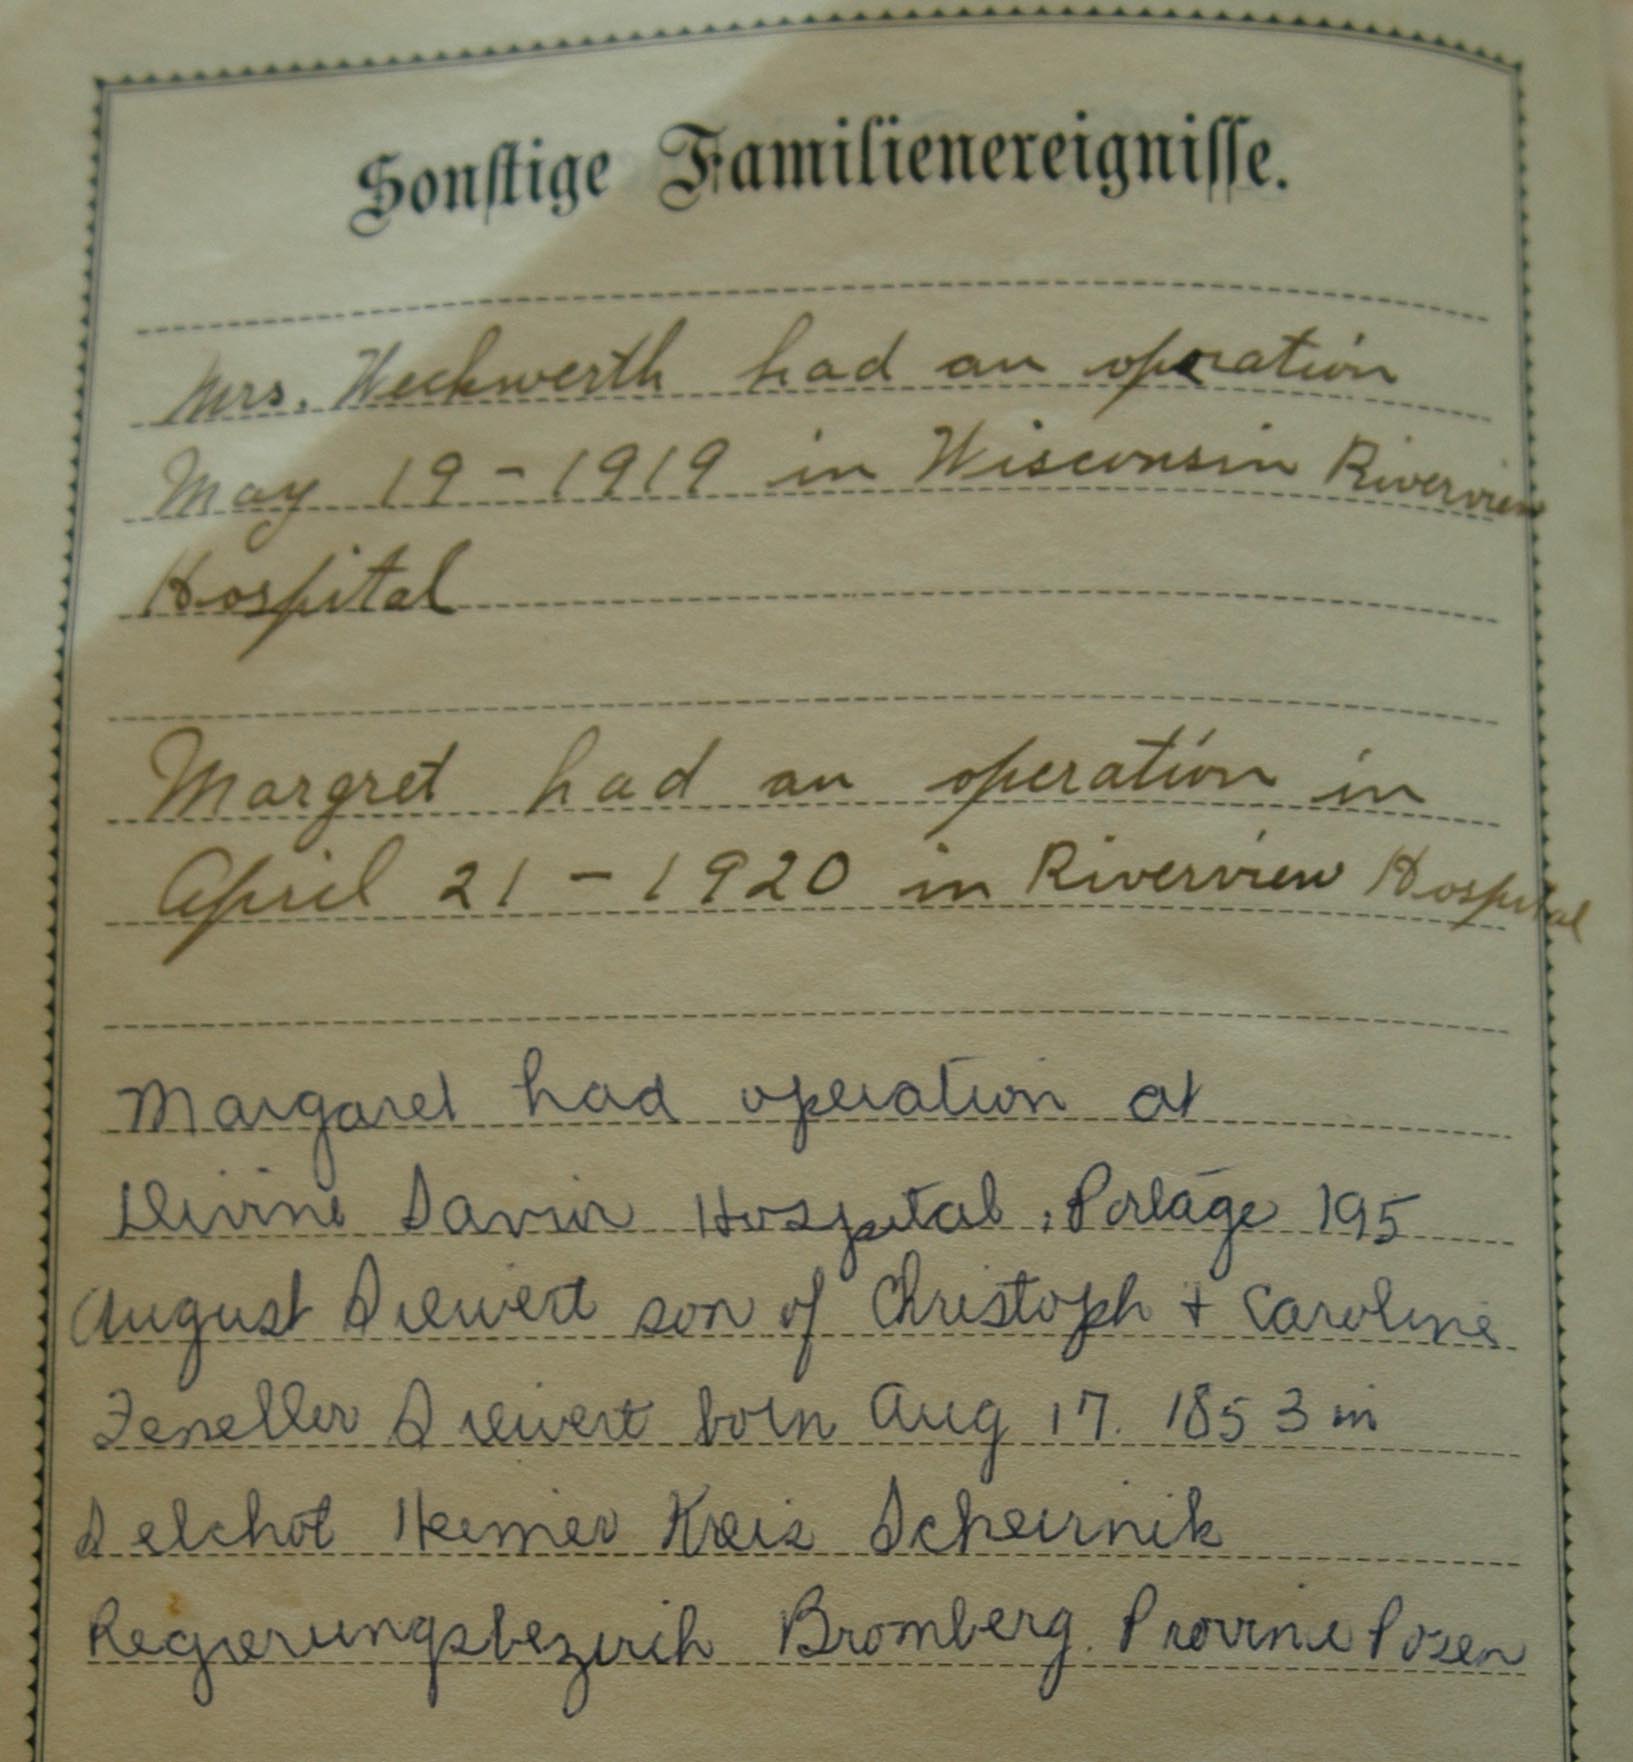 Sonstige Familienereignisse.
Mrs. Weckwerth had an operation
May 19 - 1919 in Wisconsin Riverview
Hospital
Margret had an operation in
April 21 - 1920 in Riverview Hospital
Margaret had operation at
Divine Savior Hospital, Portage 195
August Siewert son of Christoph + Caroline
Feneller Siewert born Aug 17. 1853 in
Selchot Heimer Kreis Scheirnik
Regierungsbezirih Bromberg. Provinie Posen